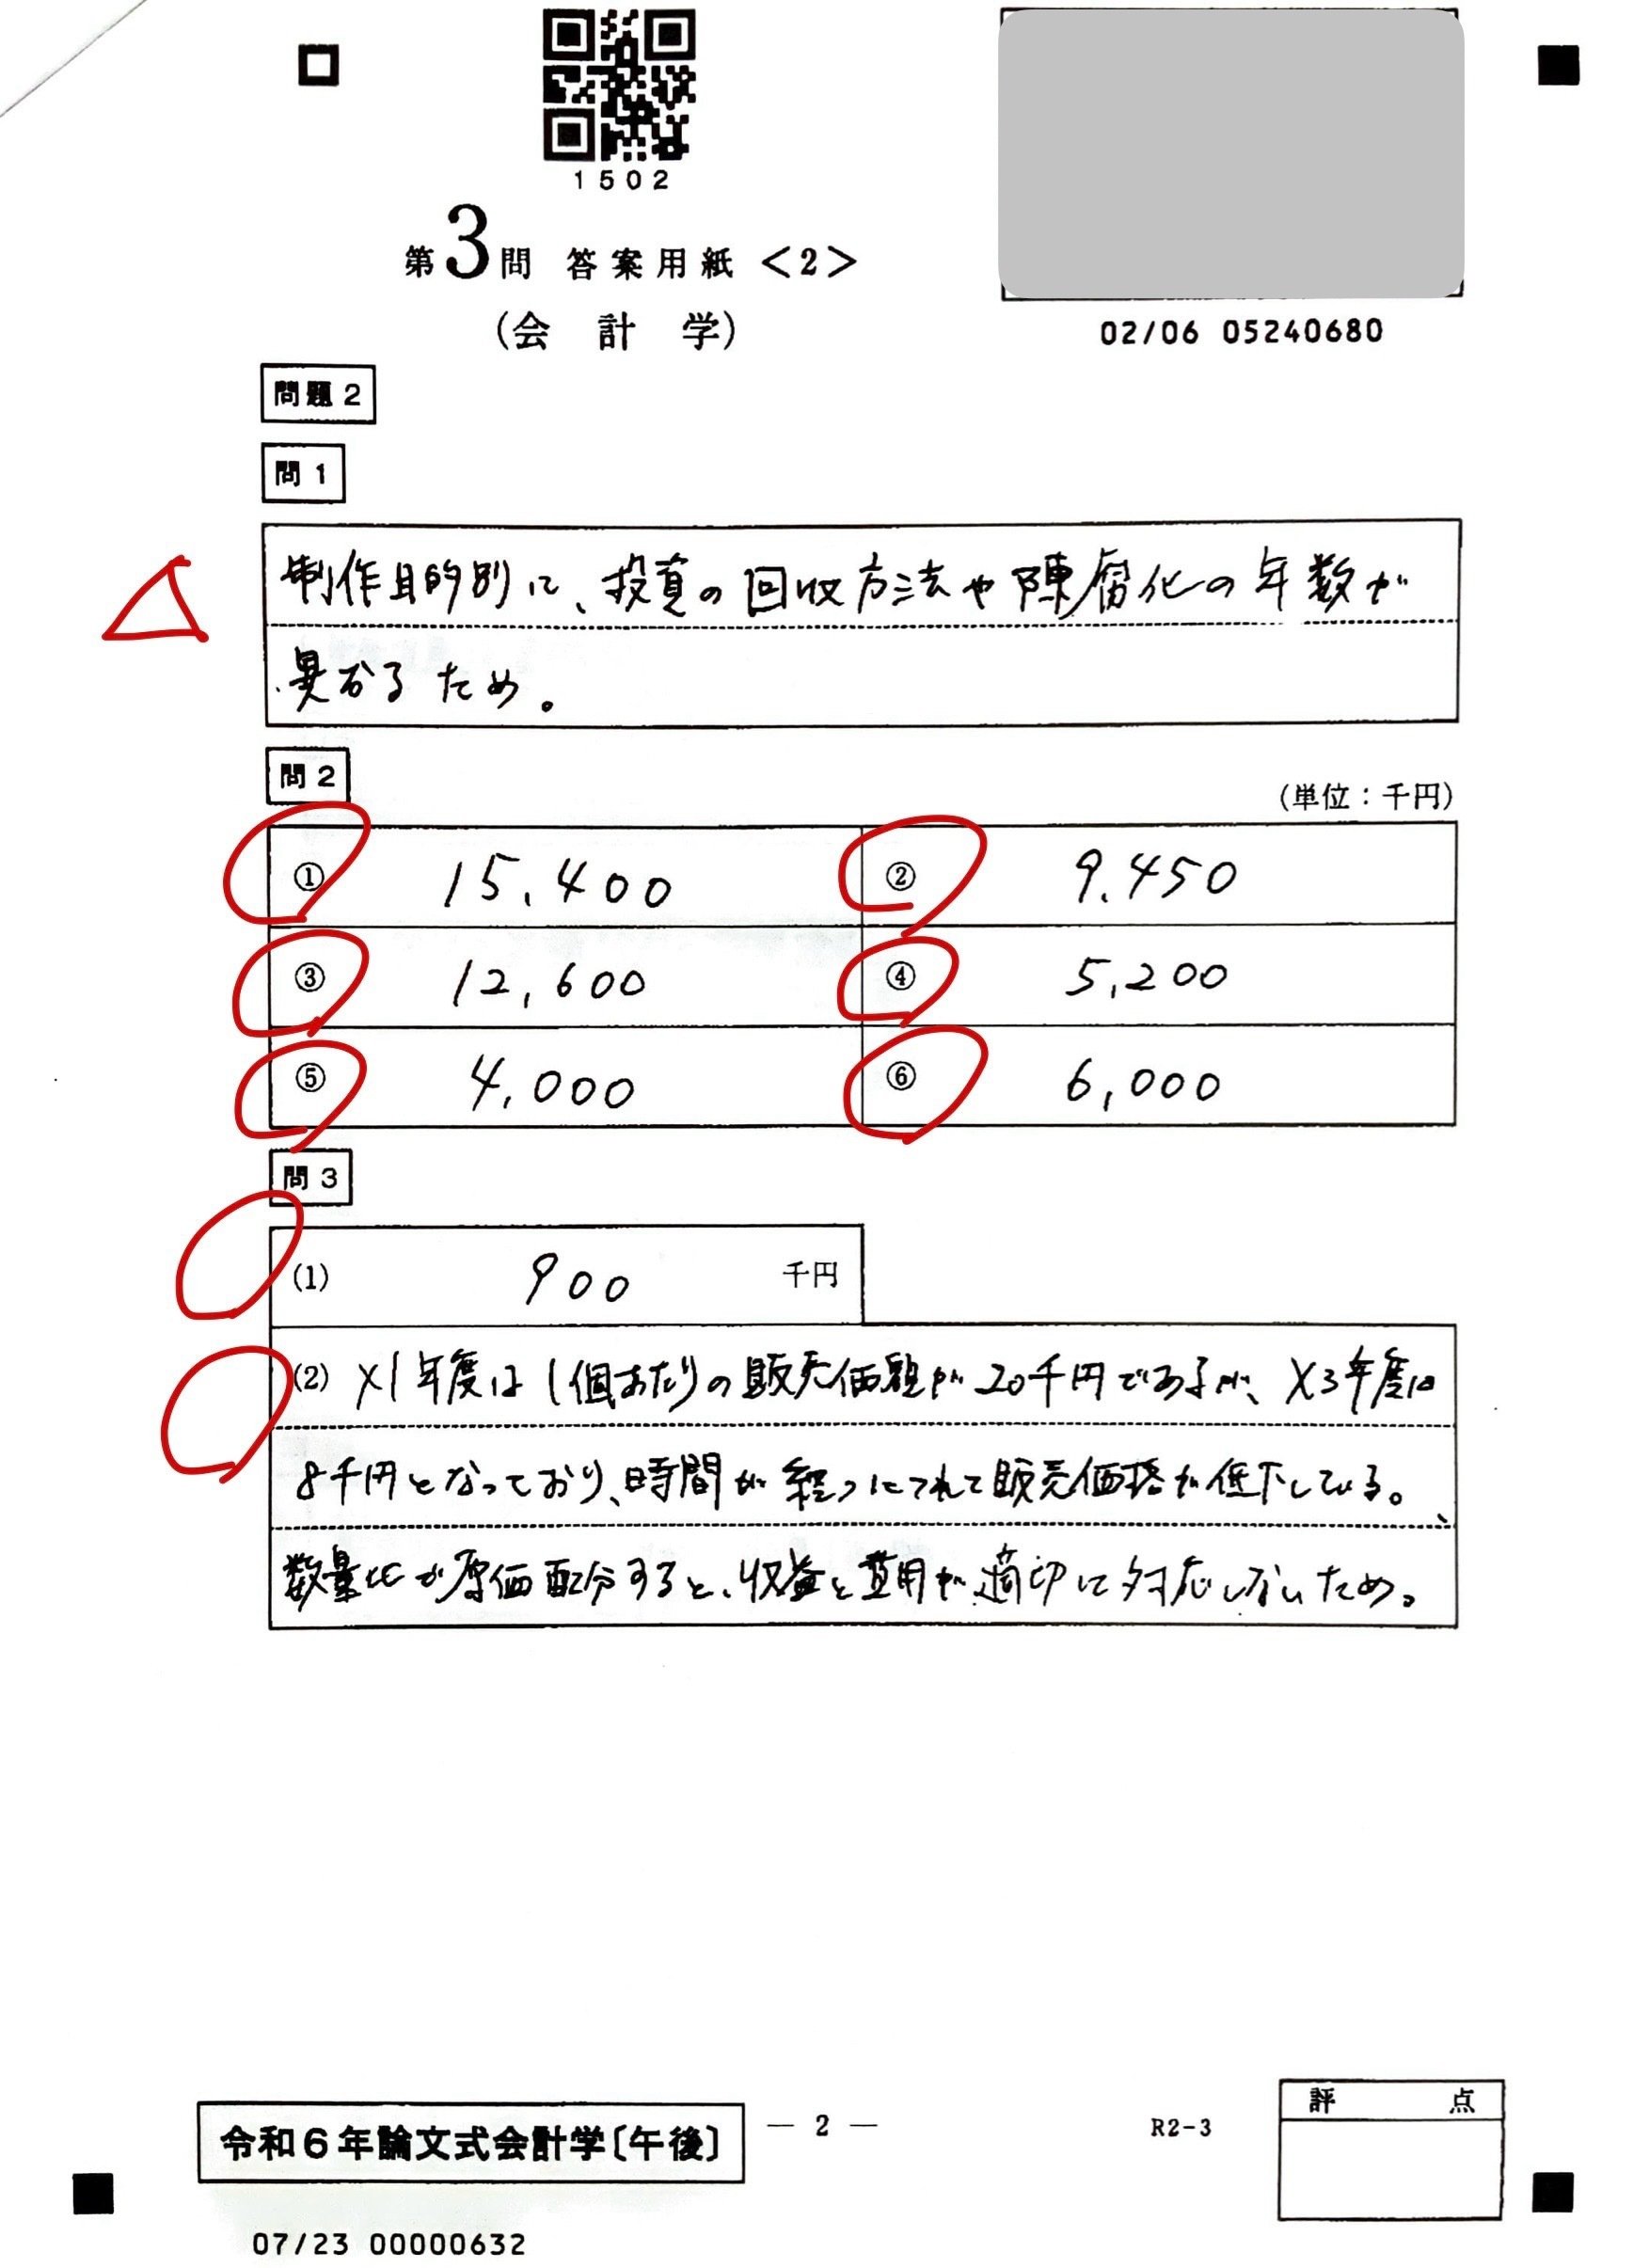 1502
第3問 答案用紙 <2>
(会 計 学)
02/06 05240680
問題2
問1
制作目的別に、投資の回収方法や陳腐化の年数が
異なるため。
問2
(単位:千円)
① 15,400 ② 9,450
③ 12,600 ④ 5,200
⑤ 4,000 ⑥ 6,000
問3
(1) 900 千円
(2) X1年度は1個あたりの販売価額が20千円であるが、X3年度は
8千円となっており、時間が経つにつれて販売価格が低下している。
数量比で原価配分すると、収益と費用が適切に対応しないため。
評 点
令和6年論文式会計学〔午後〕
— 2 —
R2-3
07/23 00000632